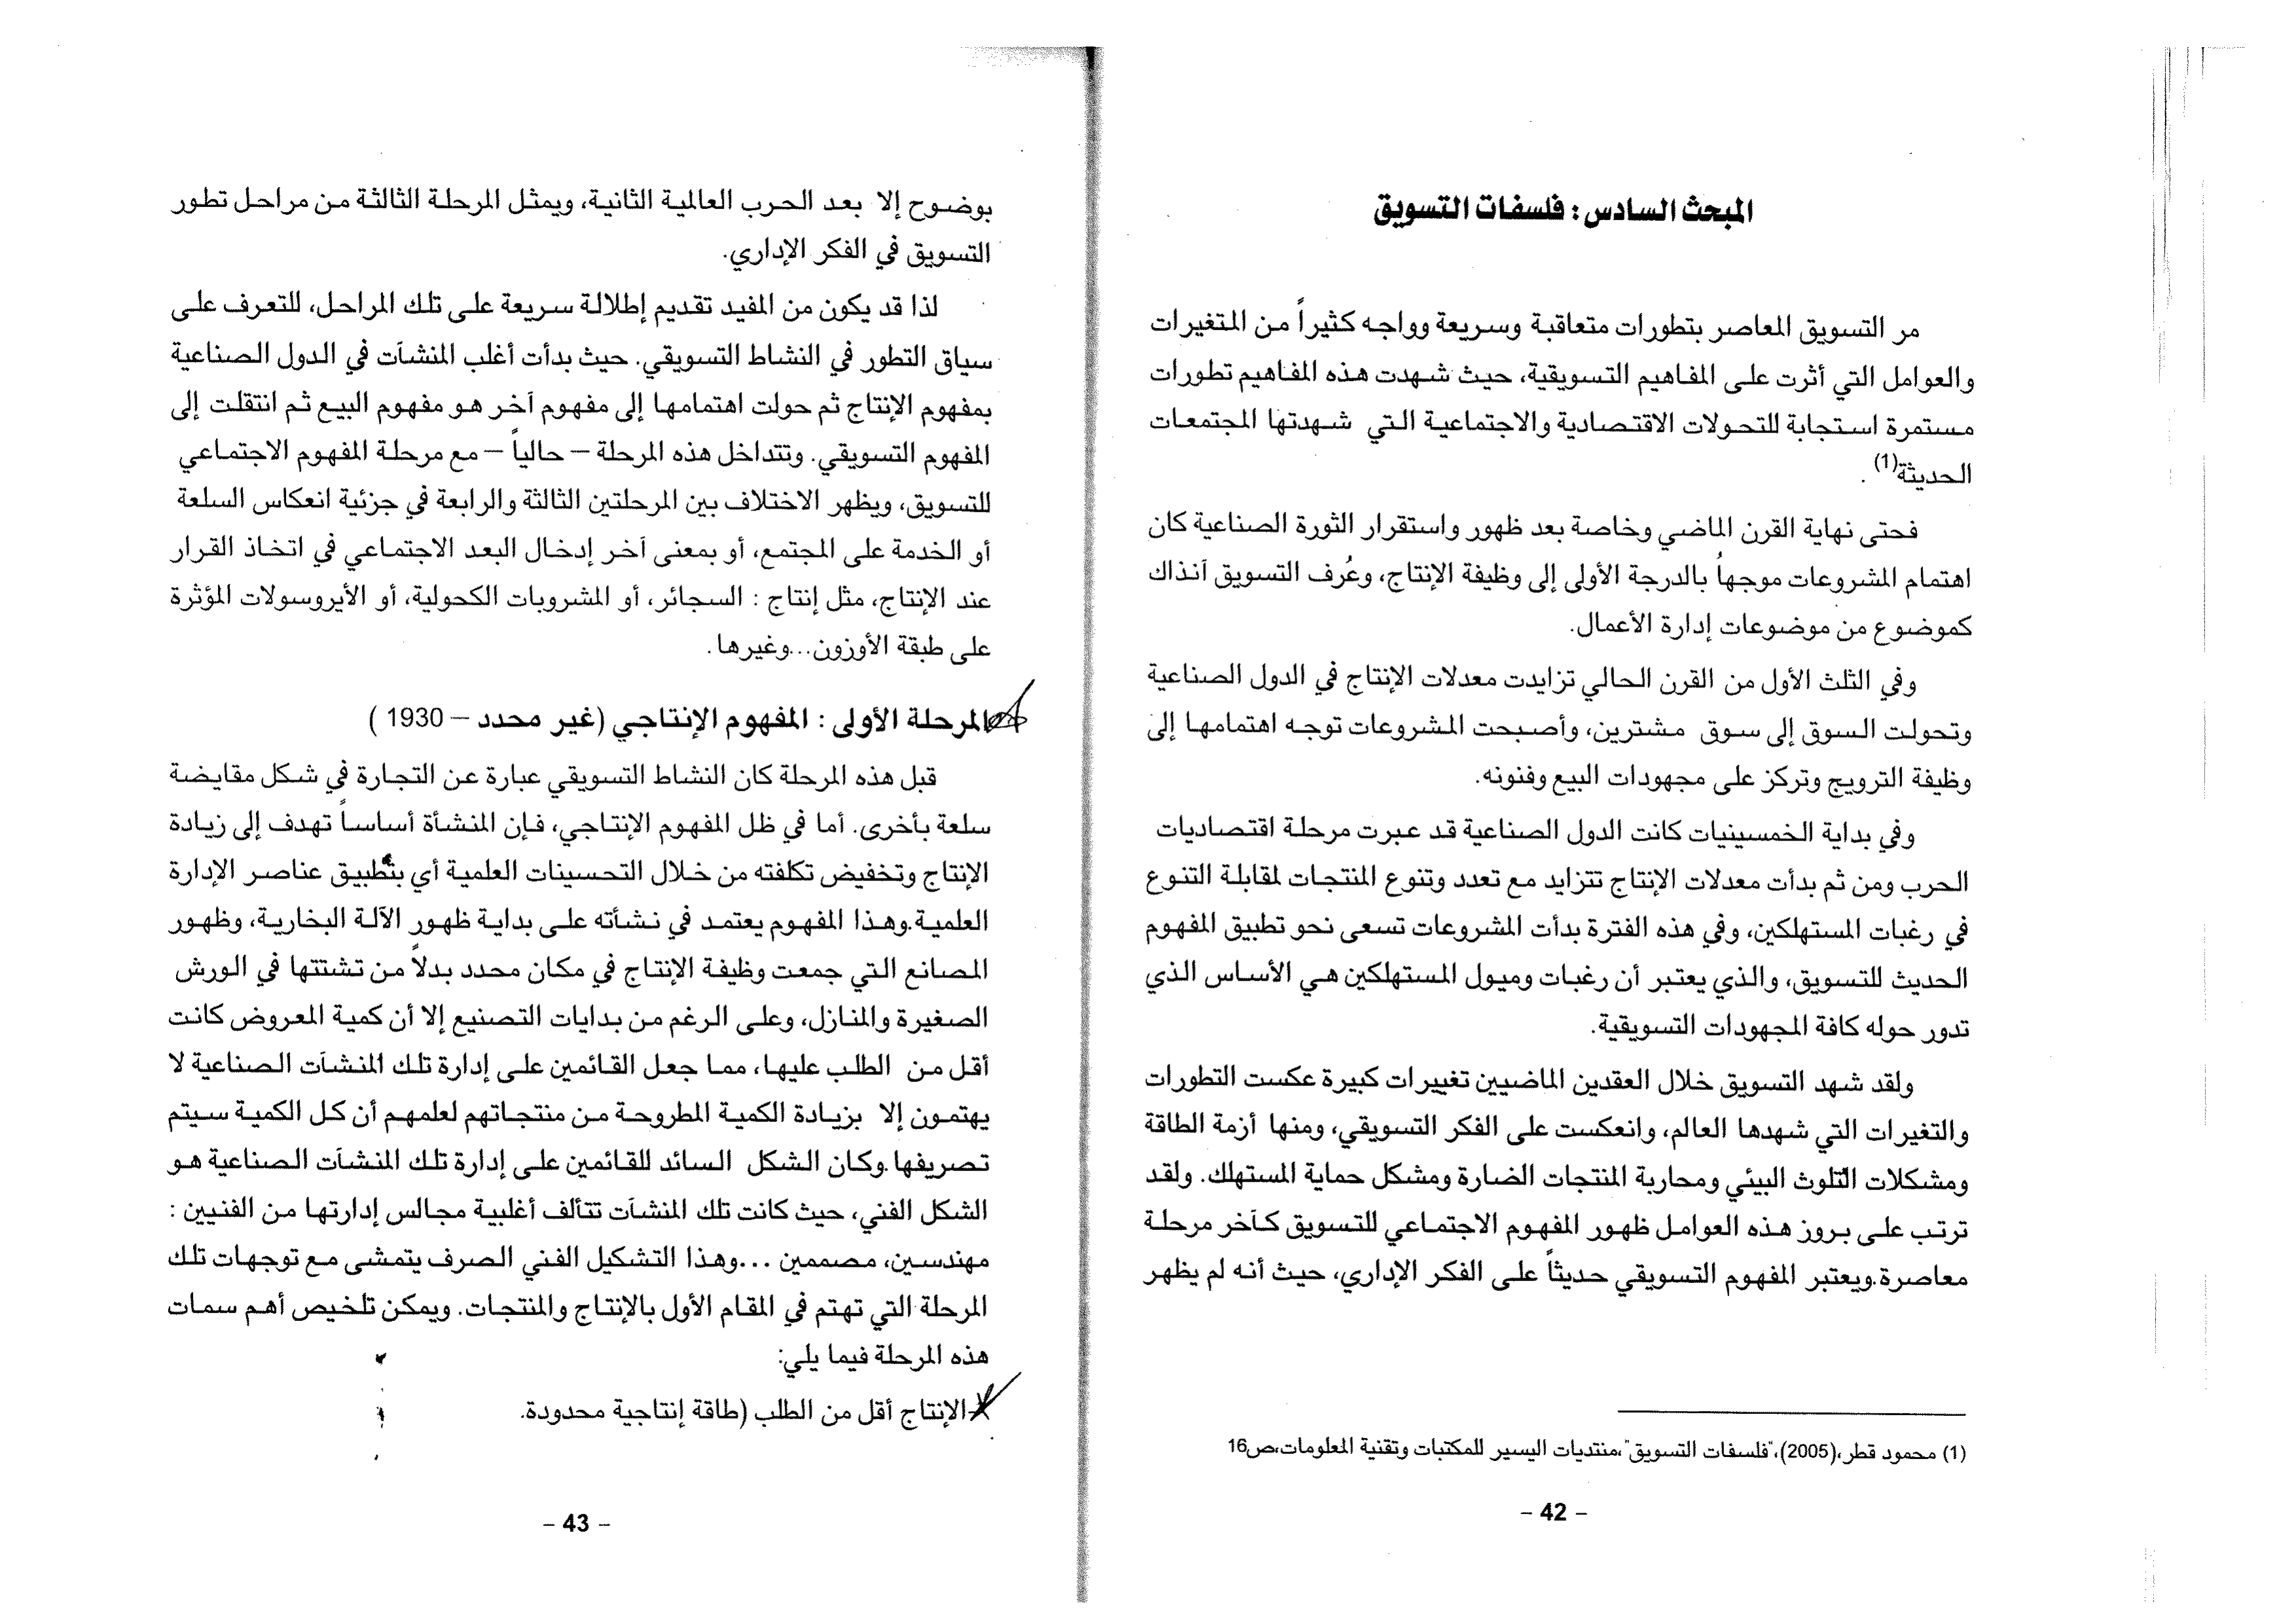 المبحث السادس: فلسفات التسويق
مر التسويق المعاصر بتطورات متعاقبة وسريعة وواجه كثيراً من المتغيرات
والعوامل التي أثرت على المفاهيم التسويقية، حيث شهدت هذه المفاهيم تطورات
مستمرة استجابة للتحولات الاقتصادية والاجتماعية التي شهدتها المجتمعات
الحديثة(1) .
فحتى نهاية القرن الماضي وخاصة بعد ظهور واستقرار الثورة الصناعية كان
اهتمام المشروعات موجهاً بالدرجة الأولى إلى وظيفة الإنتاج، وعُرف التسويق آنذاك
كموضوع من موضوعات إدارة الأعمال.
وفي الثلث الأول من القرن الحالي تزايدت معدلات الإنتاج في الدول الصناعية
وتحولت السوق إلى سوق مشترين، وأصبحت المشروعات توجه اهتمامها إلى
وظيفة الترويج وتركز على مجهودات البيع وفنونه.
وفي بداية الخمسينيات كانت الدول الصناعية قد عبرت مرحلة اقتصاديات
الحرب ومن ثم بدأت معدلات الإنتاج تتزايد مع تعدد وتنوع المنتجات لمقابلة التنوع
في رغبات المستهلكين، وفي هذه الفترة بدأت المشروعات تسعى نحو تطبيق المفهوم
الحديث للتسويق، والذي يعتبر أن رغبات وميول المستهلكين هي الأساس الذي
تدور حوله كافة المجهودات التسويقية.
ولقد شهد التسويق خلال العقدين الماضيين تغييرات كبيرة عكست التطورات
والتغيرات التي شهدها العالم، وانعكست على الفكر التسويقي، ومنها أزمة الطاقة
ومشكلات التلوث البيئي ومحاربة المنتجات الضارة ومشكل حماية المستهلك. ولقد
ترتب على بروز هذه العوامل ظهور المفهوم الاجتماعي للتسويق كآخر مرحلة
معاصرة.ويعتبر المفهوم التسويقي حديثاً على الفكر الإداري، حيث أنه لم يظهر
(1) محمود قطر،(2005)،"فلسفات التسويق"،منتديات اليسير للمكتبات وتقنية المعلومات،ص16
– 42 –
بوضوح إلا بعد الحرب العالمية الثانية، ويمثل المرحلة الثالثة من مراحل تطور
التسويق في الفكر الإداري.
لذا قد يكون من المفيد تقديم إطلالة سريعة على تلك المراحل، للتعرف على
سياق التطور في النشاط التسويقي. حيث بدأت أغلب المنشآت في الدول الصناعية
بمفهوم الإنتاج ثم حولت اهتمامها إلى مفهوم آخر هو مفهوم البيع ثم انتقلت إلى
المفهوم التسويقي. وتتداخل هذه المرحلة – حالياً – مع مرحلة المفهوم الاجتماعي
للتسويق، ويظهر الاختلاف بين المرحلتين الثالثة والرابعة في جزئية انعكاس السلعة
أو الخدمة على المجتمع، أو بمعنى آخر إدخال البعد الاجتماعي في اتخاذ القرار
عند الإنتاج، مثل إنتاج : السجائر، أو المشروبات الكحولية، أو الأيروسولات المؤثرة
على طبقة الأوزون...وغيرها.
المرحلة الأولى : المفهوم الإنتاجي (غير محدد – 1930 )
قبل هذه المرحلة كان النشاط التسويقي عبارة عن التجارة في شكل مقايضة
سلعة بأخرى. أما في ظل المفهوم الإنتاجي، فإن المنشأة أساساً تهدف إلى زيادة
الإنتاج وتخفيض تكلفته من خلال التحسينات العلمية أي بتطبيق عناصر الإدارة
العلمية.وهذا المفهوم يعتمد في نشأته على بداية ظهور الآلة البخارية، وظهور
المصانع التي جمعت وظيفة الإنتاج في مكان محدد بدلاً من تشتتها في الورش
الصغيرة والمنازل، وعلى الرغم من بدايات التصنيع إلا أن كمية المعروض كانت
أقل من الطلب عليها، مما جعل القائمين على إدارة تلك المنشآت الصناعية لا
يهتمون إلا بزيادة الكمية المطروحة من منتجاتهم لعلمهم أن كل الكمية سيتم
تصريفها.وكان الشكل السائد للقائمين على إدارة تلك المنشآت الصناعية هو
الشكل الفني، حيث كانت تلك المنشآت تتألف أغلبية مجالس إدارتها من الفنيين :
مهندسين، مصممين ...وهذا التشكيل الفني الصرف يتمشى مع توجهات تلك
المرحلة التي تهتم في المقام الأول بالإنتاج والمنتجات. ويمكن تلخيص أهم سمات
هذه المرحلة فيما يلي:
الإنتاج أقل من الطلب (طاقة إنتاجية محدودة.
– 43 –